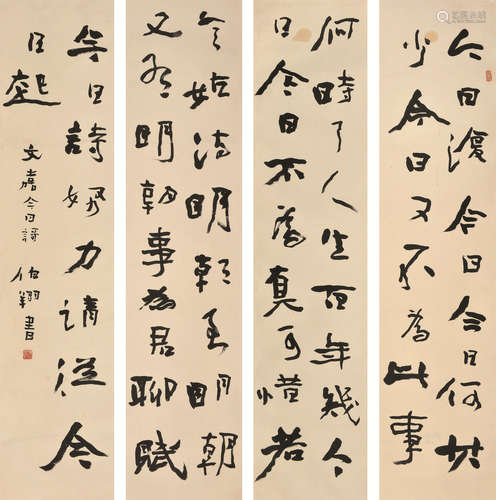 今日復今日今日何其
少今日又不為此事
何時了人生百年幾今
日今日不為真可惜若
言姑待明朝至明朝
又有明朝事為君聊賦
今日詩努力請從今
日起
文嘉今日詩 伯翔書